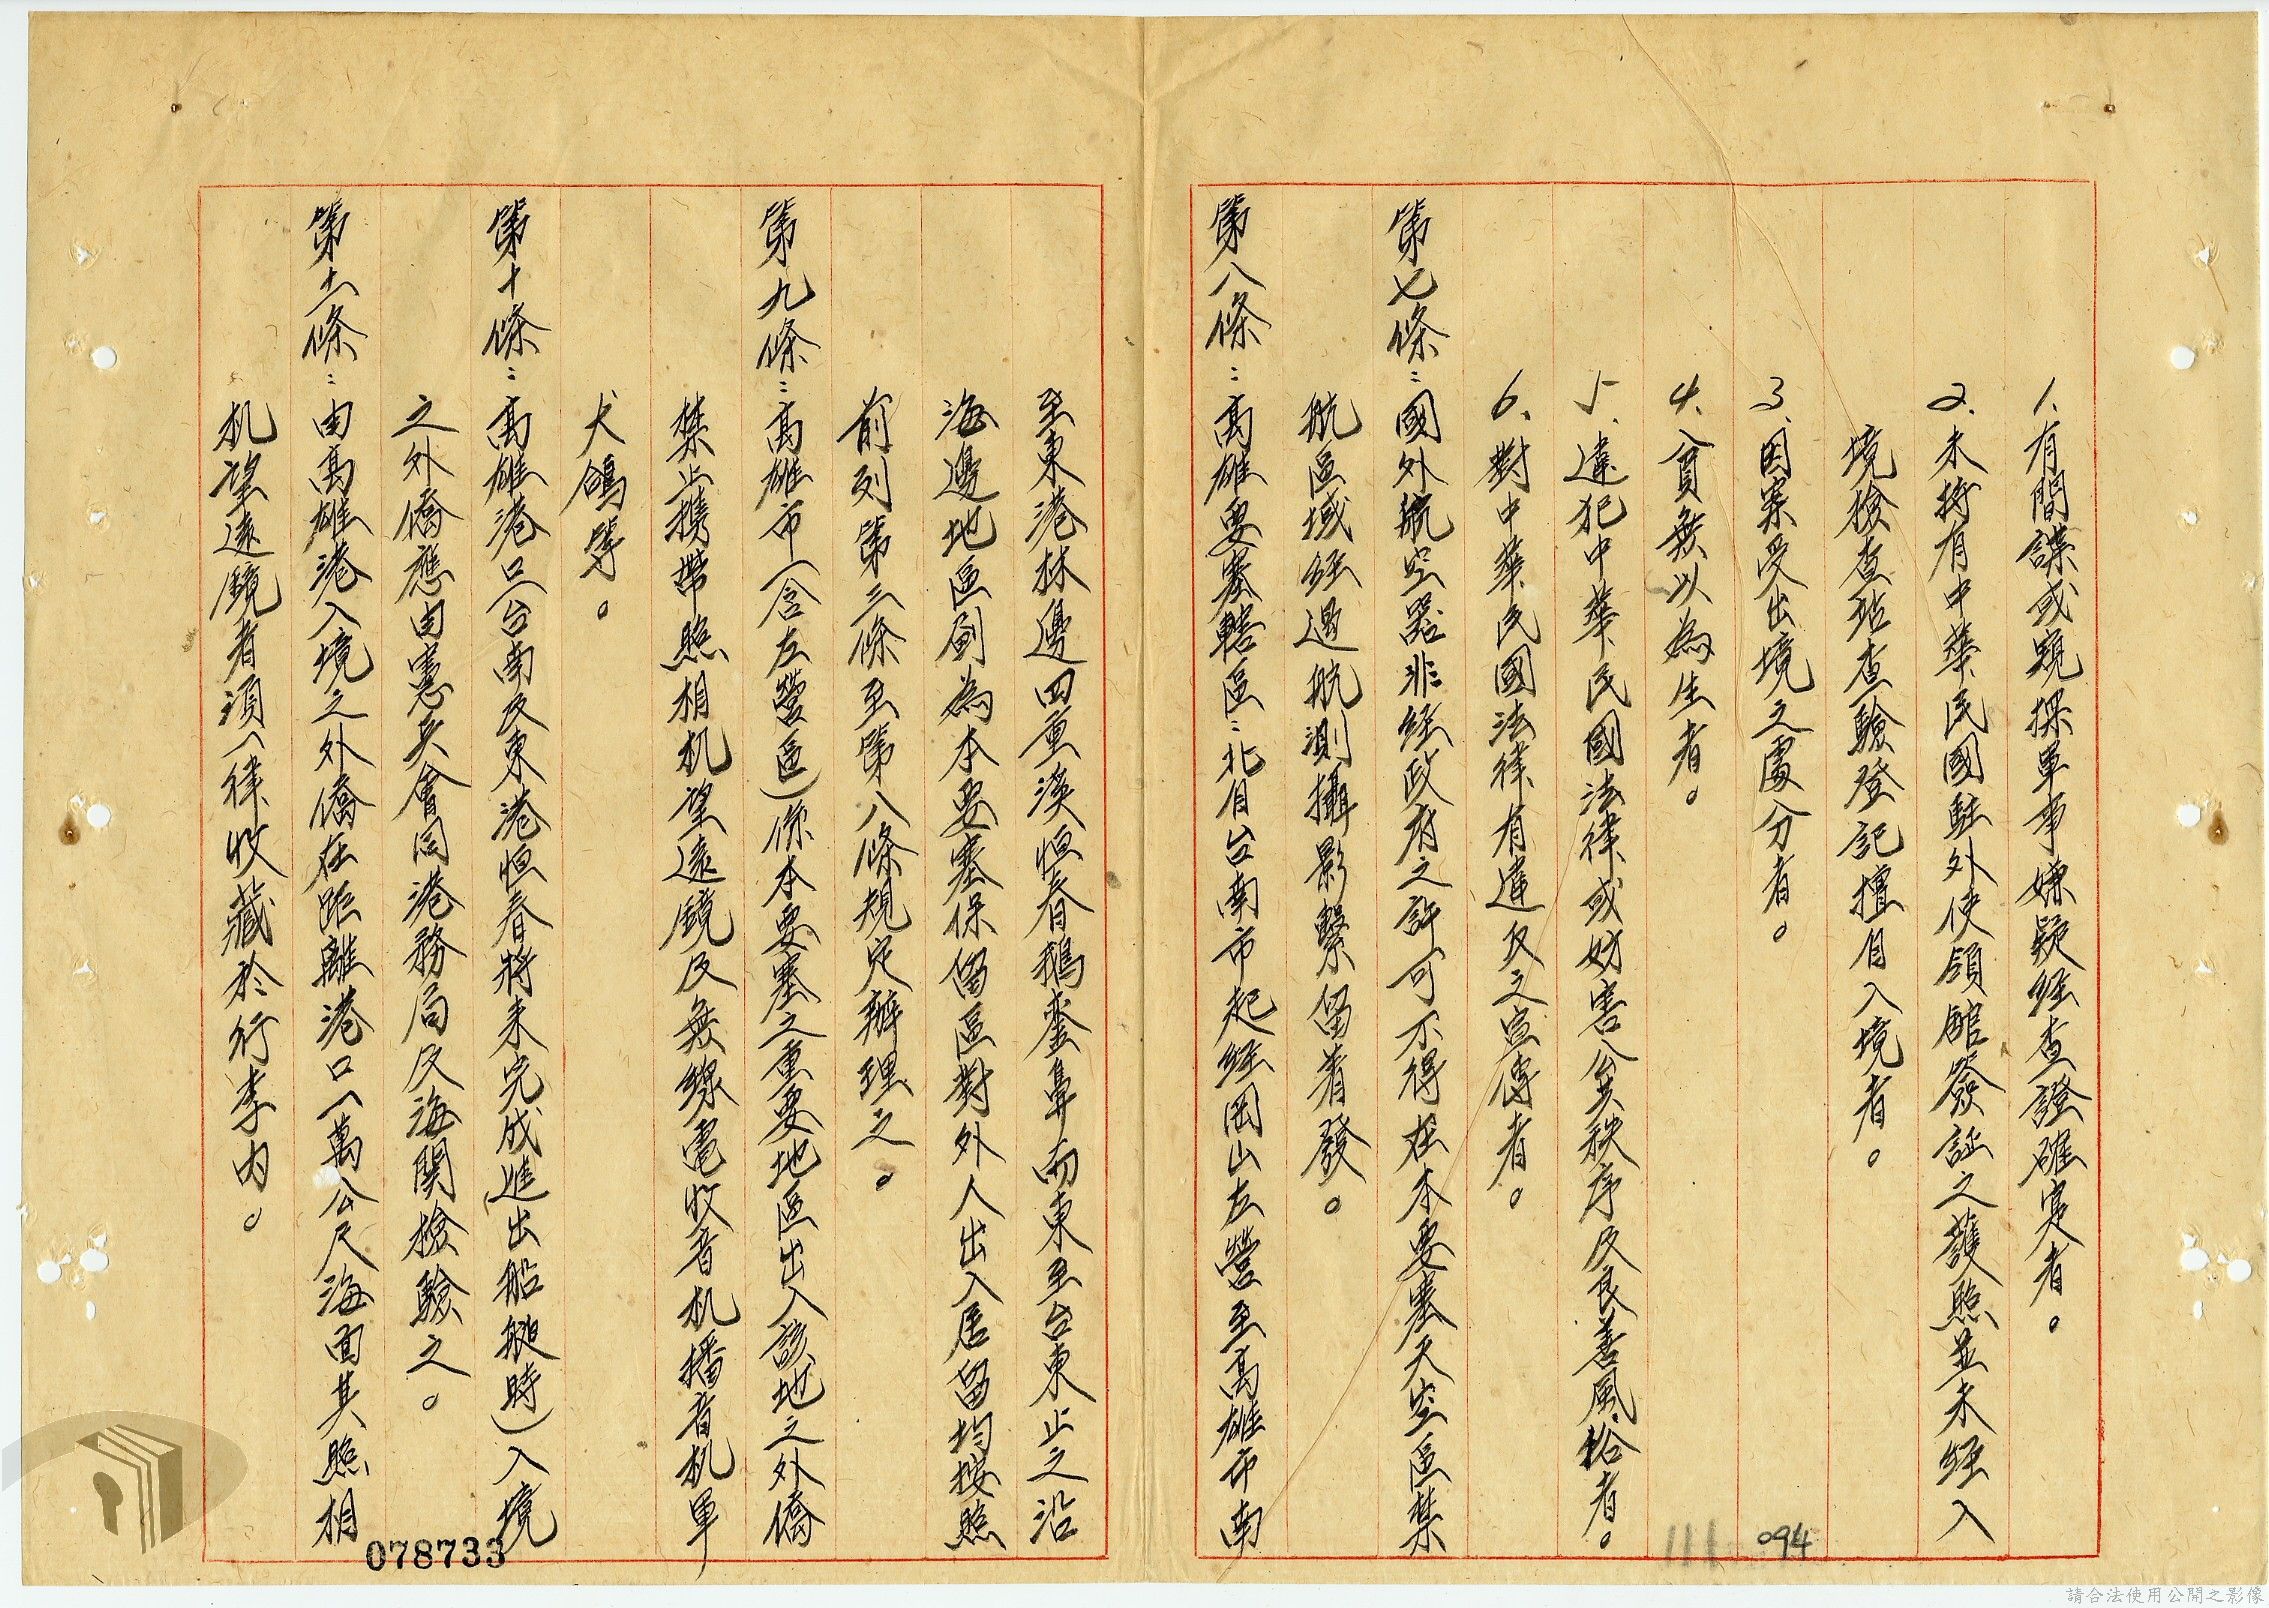 1.有間諜或窺探軍事嫌疑経查證確寔者。
2.未持有中華民國駐外使領館簽証之護照並未経入
境檢查站查驗登記擅自入境者。
3.因案受出境之處分者。
4.貧無以為生者。
5.違犯中華民國法律或妨害公共秩序及良善風俗者。
6.對中華民國法律有違反之宣傳者。
第七條:國外航空器非経政府之許可不得在本要塞天空區禁
航區域経過航測攝影繫留着發。
第八條:高雄要塞轄區:北自台南市起経岡山左營至高雄市南
至東港林邊四重溪恒春鵝鑾鼻而東至台東止之沿
海邊地區劃為本要塞保留區對外人出入居留均按照
前列第三條至第八條規定辦理之。
第九條:高雄市(含左營區)係本要塞之重要地區出入該地之外僑
禁止携帶照相机望遠鏡及無線電收音机播音机軍
犬鴿等。
第十條:高雄港口(台南及東港恒春將來完成進出船艇時)入境
之外僑應由憲兵會同港務局及海関檢驗之。
第十一條:由高雄港入境之外僑在距離港口一萬公尺海面其照相
机望遠鏡者須一律收藏於行李內。
078733
094
111
請合法使用公開之影像